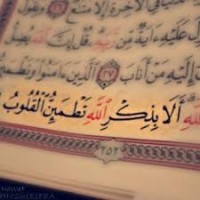 فِي ٱلْءَاخِرَةِ إِلَّا مَتَٰعٌ ٢٦ وَيَقُولُ
عَلَيْهِ ءَايَةٌ مِّن رَّبِّهِۦ قُلْ إِنَّ ٱللَّهَ
إِلَيْهِ مَنْ أَنَابَ ٢٧ ٱلَّذِينَ ءَامَنُوا۟ وَتَطْمَئِنُّ
ٱللَّهِ أَلَا بِذِكْرِ ٱللَّهِ تَطْمَئِنُّ ٱلْقُلُوبُ
٢٥٢